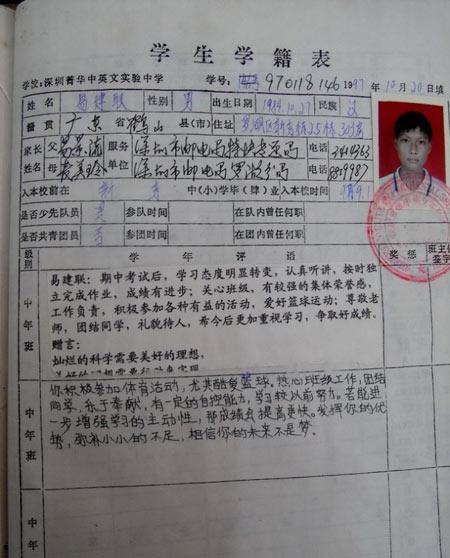 学生学籍表
学校:深圳菁华中英文实验中学 学号: 970118146 1997年10月20日填
姓名 易建联 性别 男 出生日期 1984.10.27 民族 汉
籍贯 广东省鹤山县(市) 住址
家长 父 易景流 服务 深圳市邮电局 电话
姓名 母 麦玉玲 单位 深圳市邮电局 电话
入本校前在 中(小)学毕(肆)业入本校时间
是否少先队员 是 参队时间 在队内曾任何职
是否共青团员 否 参团时间 在团内曾任何职
级别 学年评语 奖惩 班主任签字
中年班
易建联:期中考试后,学习态度明显转变,认真听讲,按时独
立完成作业,成绩有进步;关心班级,有较强的集体荣誉感,
工作负责,积极参加各种有益的活动,爱好篮球运动;尊敬老
师,团结同学,礼貌待人,希今后更加重视学习,争取好成绩。
赠言:
灿烂的科学需要美好的理想,
中年班
你积极参加体育活动,尤其酷爱篮球。热心班级工作,团结
同学,乐于奉献,有一定的自控能力,学习较以前努力。若能进
一步增强学习的主动性,那成绩会提高更快。发挥你的优
势,弥补小小的不足,相信你的未来不是梦。
中年